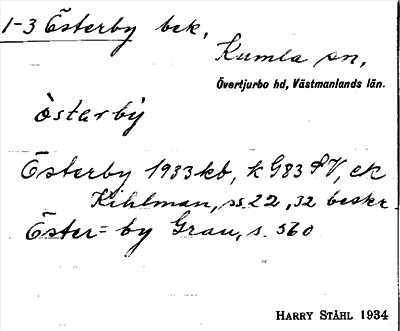 1-3 Österby bek,
Kumla sn,
Övertjurbo hd, Västmanlands län.
òsterbỳ
Österby 1933 kb, k G83 SV, ek
Kihlman, ss. 22, 32 beskr
Öster= by Grau, s. 560
HARRY STÅHL 1934